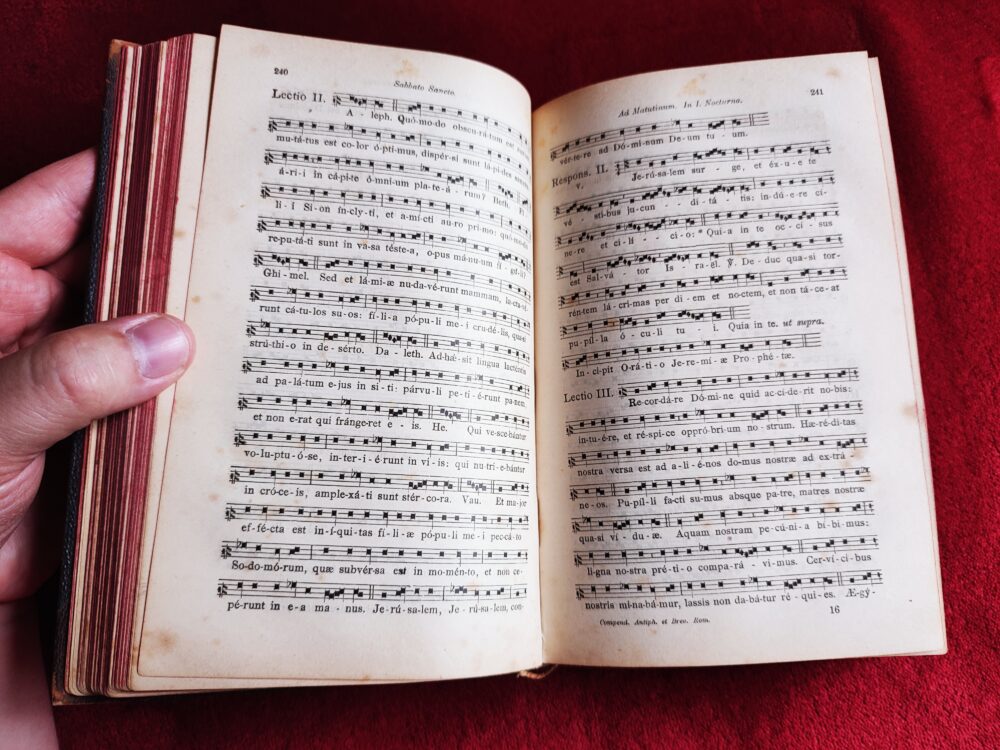 240
Sabbato Sancto.
Lectio II.
A - leph. Quó-mo-do obscu-rá-tum est
mu-tá-tus est co-lor ó-pti-mus, dispér-si sunt lá-pi-des
á-ri-i in cá-pi-te ó-mni-um pla-te-á - rum? Beth. Fí
li - i Si-on ín-cly-ti, et a-mí-cti au-ro pri-mo: quó-mo-do
re-pu-tá-ti sunt in va-sa téste-a, o-pus má-nu-um fí-gu-li?
Ghi-mel. Sed et lá-mi-æ nu-da-vé-runt mammam, la-cta-
runt cá-tu-los su-os: fí-li-a pó-pu-li me-i cru-dé-lis, qua-si
strú-thi-o in de-sér-to. Da-leth. Ad-hǽ-sit lingua lacténtis
ad pa-lá-tum e-jus in si-ti: párvu-li pe-ti-é-runt pa-nem,
et non e-rat qui fránge-ret e - is. He. Qui ve-sce-bántur
vo-lu-ptu-ó-se, in-ter-i-é-runt in vi-is: qui nu-tri-e-bántur
in cró-ce-is, ample-xá-ti sunt stér-co-ra. Vau. Et ma-jor
ef-fé-cta est in-í-qui-tas fí-li-æ pó-pu-li me-i pec-cá-to
So-do-mó-rum, quæ subvér-sa est in mo-mén-to, et non ce-
pé-runt in e-a ma - nus. Je-rú-sa-lem, Je-rú-sa-lem, con-
Ad Matutinum. In I. Nocturno.
241
vér-te-re ad Dó-mi-num De-um tu - um.
Respons. II.
Je-rú-sa-lem sur - ge, et éx-u-e te
vé - sti-bus ju-cun - di-tá - tis: in-dú-e-re cí-
ne-re et ci-lí - ci-o: * Qui-a in te oc-cí-sus
est Sal-vá - tor Is-ra-ël. ℣. De-duc qua-si tor-
rén-tem lá-cri-mas per di-em et no-ctem, et non tá-ce-at
pu-píl-la ó-cu-li tu - i. Quia in te. ut supra.
In-ci-pit O-rá-ti-o Je-re-mí-æ Pro-phé-tæ.
Lectio III.
Re-cor-dá-re Dó-mi-ne quid ac-cí-de-rit no-bis:
in-tu-é-re, et ré-spi-ce oppró-bri-um no-strum. Hæ-ré-di-tas
nostra versa est ad a-li-é-nos do-mus nostræ ad ex-trá-
ne-os. Pu-píl-li fa-cti su-mus absque pa-tre, matres nostræ
qua-si ví - du-æ. Aquam nostram pe-cú-ni-a bí-bi-mus:
li-gna no-stra pré-ti-o compa-rá - vi-mus. Cer-ví-ci-bus
nostris mi-na-bá-mur, lassis non da-bá-tur ré-qui-es. Æ-gý-
Compend. Antiph. et Brev. Rom.
16